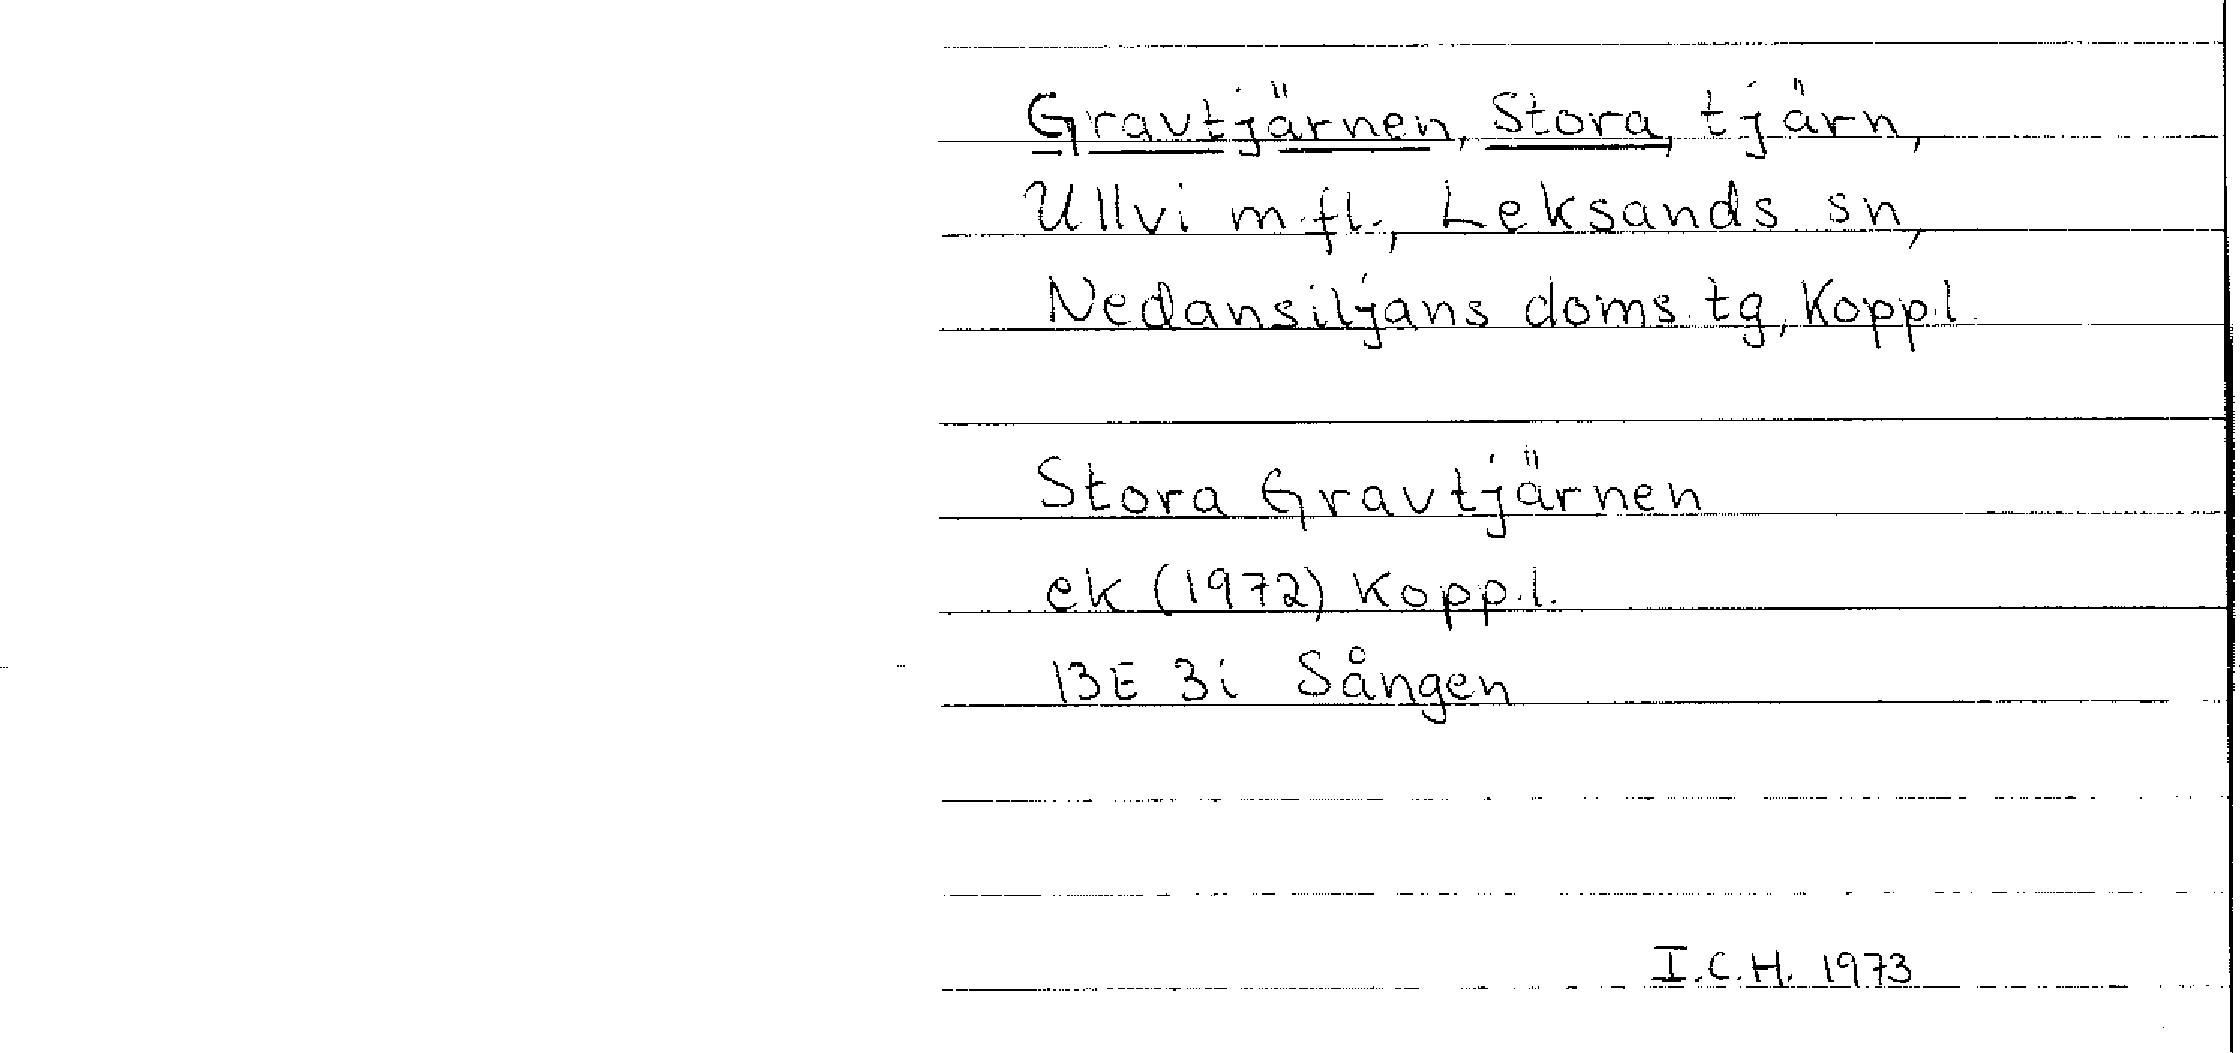 Gravtjärnen, Stora, tjärn,
Ullvi m.fl., Leksands sn,
Nedansiljans doms.tg, Kopp.l.
Stora Gravtjärnen
ek (1972) Kopp.l.
13E 3i Sången
I.C.H. 1973